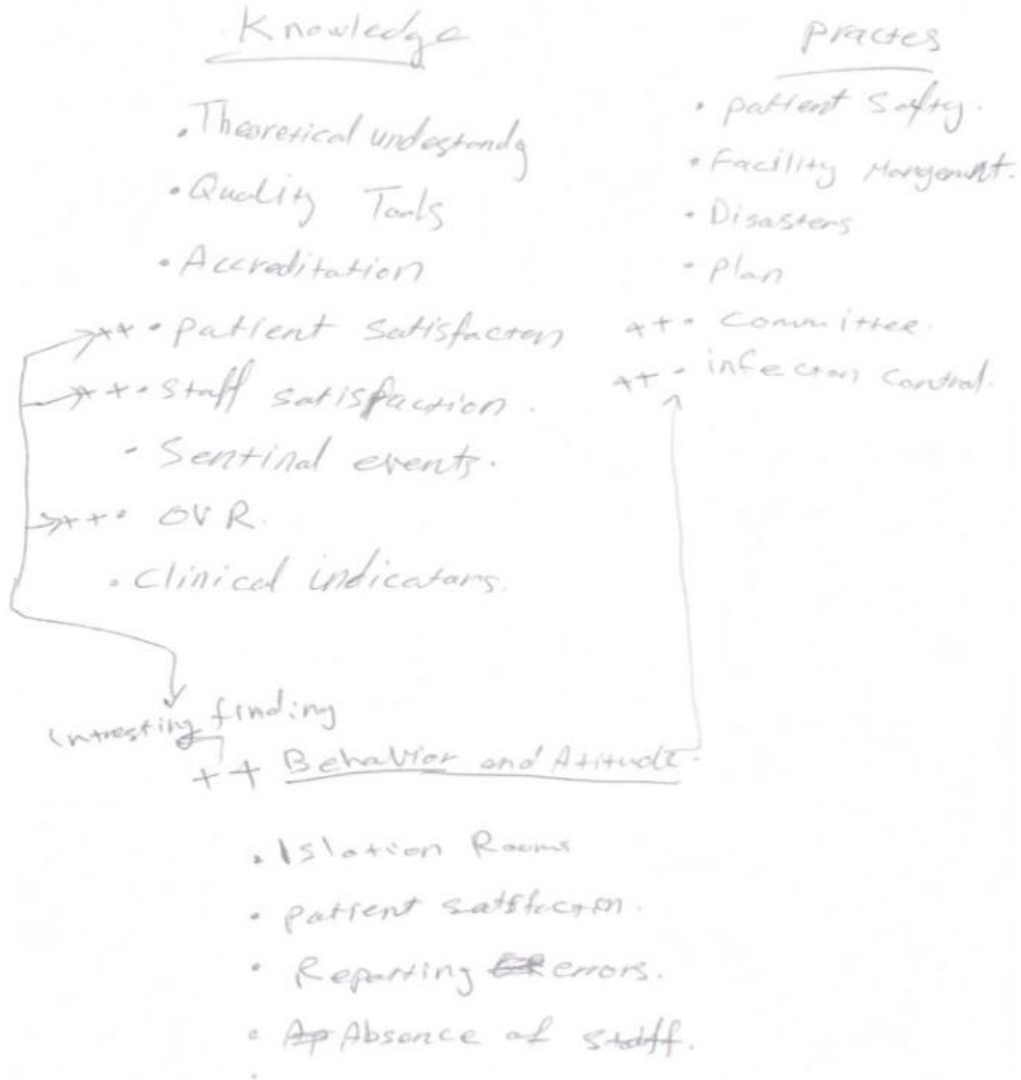 Knowledge
. Theoretical undestandg
• Quality Tools
• Accreditation
++ • patient satisfacton
++ • Staff satisfaction.
- Sentinal events.
++ • OVR.
. Clinical indicators.
practes
• patient Safty.
• Facility Mangemnt.
• Disasters
• Plan
++ • Committee.
++ • infecton Control.
intresting finding
++ Behavior and Atitude.
. Islation Rooms
• patient satsfacton.
• Reporting errors.
• Absence of staff.